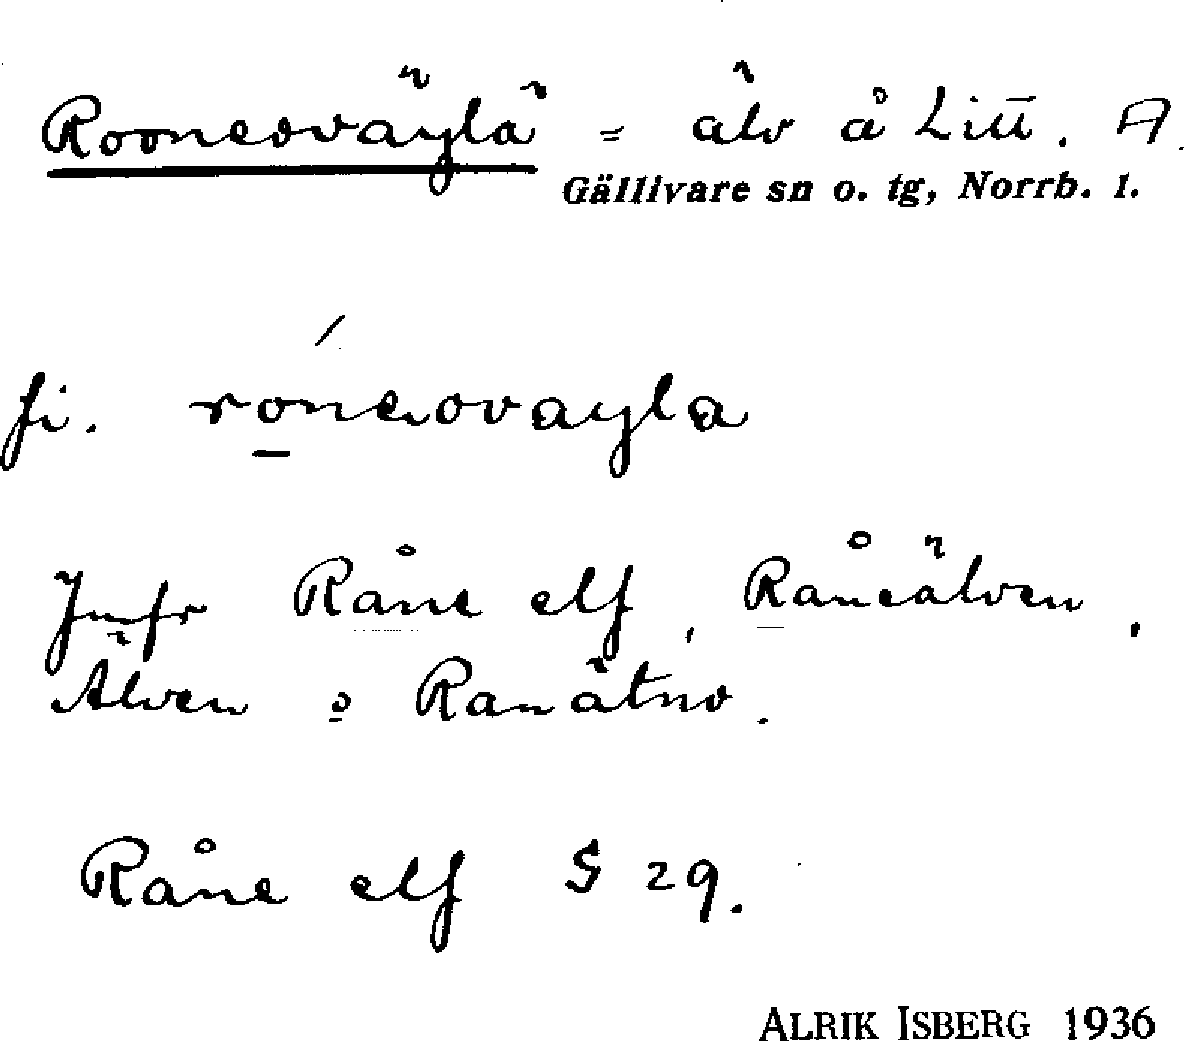 Rooneoväylä = älv å Litt. A.
Gällivare sn o. tg, Norrb. l.
fi. roneovayla
Jmfr Råne elf, Råneälven,
Älven o Ranätno.
Råne elf S 29.
ALRIK ISBERG 1936